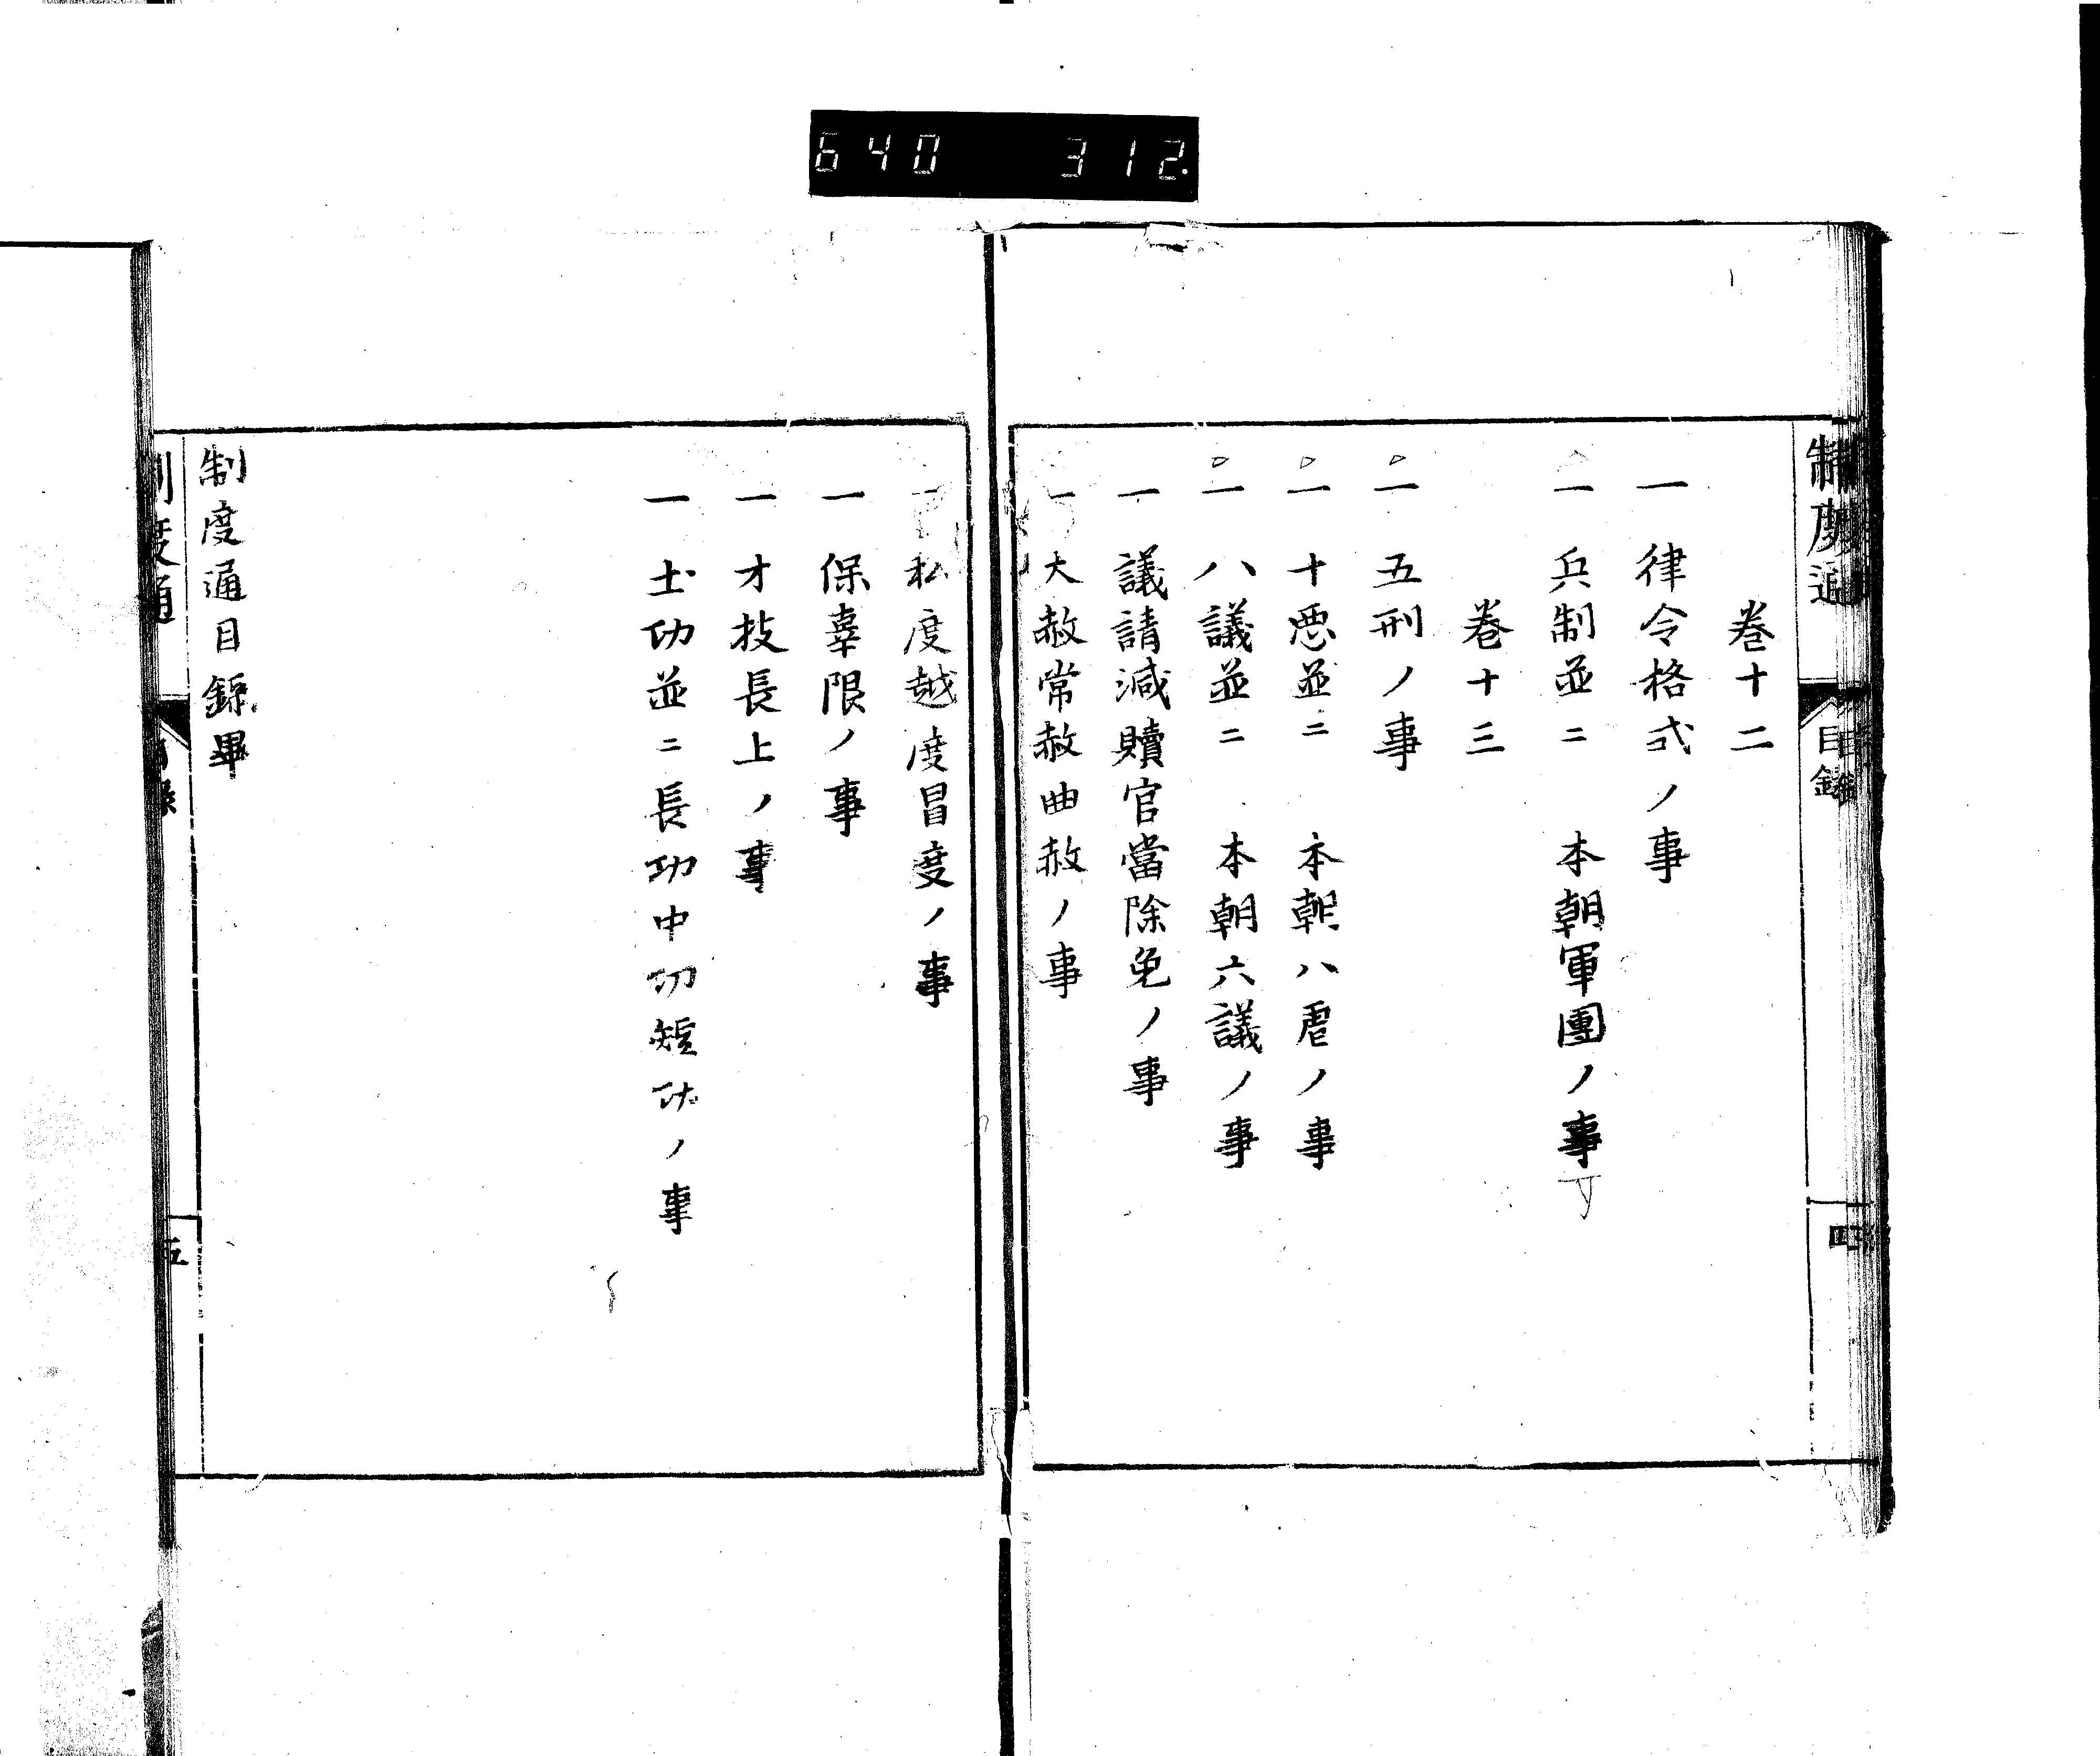 640 312
制度通 目錄 四
巻十二
一 律令格式ノ事
一 兵制並ニ 本朝軍團ノ事
巻十三
一 五刑ノ事
一 十悪並ニ 本朝八虐ノ事
一 八議並ニ 本朝六議ノ事
一 議請減贖官當除免ノ事
一 大赦常赦曲赦ノ事
一 私度越度冒度ノ事
一 保辜限ノ事
一 才技長上ノ事
一 土功並ニ長功中功短功ノ事
制度通目錄畢
制度通 目錄 五